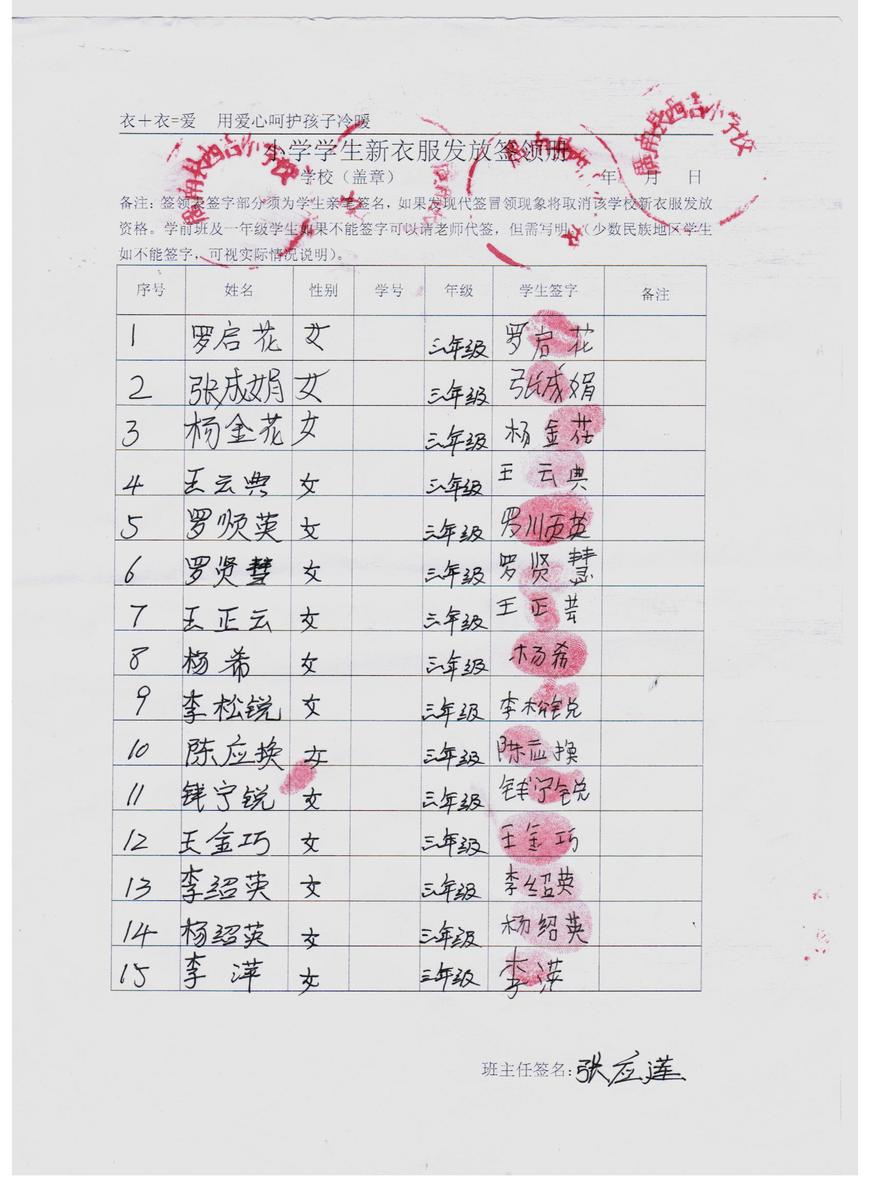 衣＋衣=爱 用爱心呵护孩子冷暖
小学学生新衣服发放签领册
学校（盖章） 年 月 日
备注：签领表签字部分须为学生亲笔签名，如果发现代签冒领现象将取消该学校新衣服发放
资格。学前班及一年级学生如果不能签字可以请老师代签，但需写明。（少数民族地区学生
如不能签字，可视实际情况说明）。
序号 姓名 性别 学号 年级 学生签字 备注
1 罗启花 女 三年级 罗启花
2 张成娟 女 三年级 张成娟
3 杨金花 女 三年级 杨金花
4 王云典 女 三年级 王云典
5 罗顺英 女 三年级 罗顺英
6 罗贤慧 女 三年级 罗贤慧
7 王正云 女 三年级 王正芸
8 杨希 女 三年级 杨希
9 李松锐 女 三年级 李松锐
10 陈应换 女 三年级 陈应换
11 宁锐 女 三年级 宁锐
12 王金巧 女 三年级 王金巧
13 李绍英 女 三年级 李绍英
14 杨绍英 女 三年级 杨绍英
15 李萍 女 三年级 李萍
班主任签名：张应莲